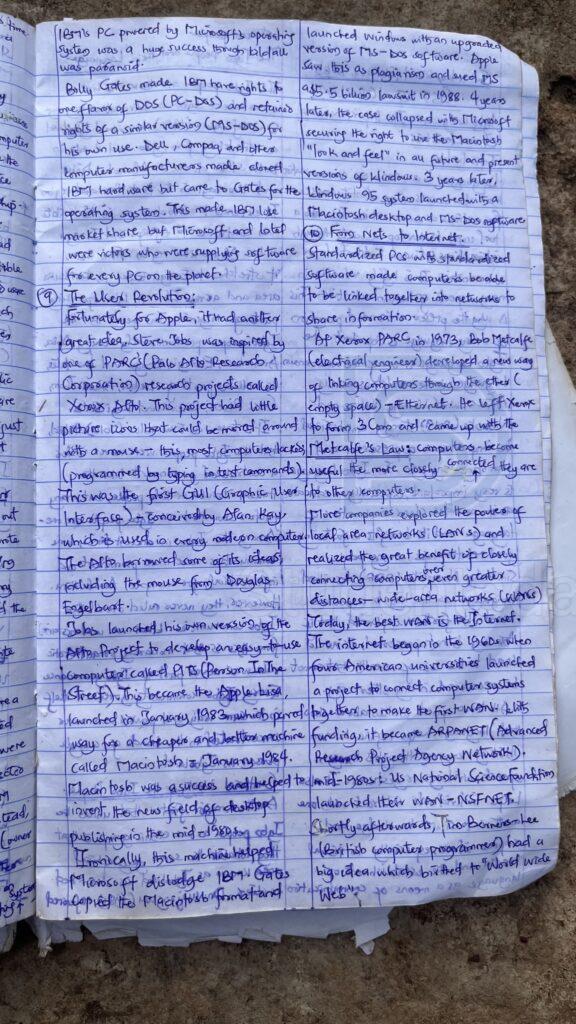 IBM's PC powered by Microsoft's operating
system was a huge success though
was paranoid.
Billy Gates made IBM have rights to
one flavor of DOS (PC-DOS) and retained
rights of a similar version (MS-DOS) for
his own use. Dell, Compaq, and other
computer manufacturers made cloned
IBM hardware but came to Gates for the
operating system. This made IBM lose
market share but Microsoft and Intel
were victors who were supplying software
for every PC on the planet.
9 The User Revolution:
fortunately for Apple, it had another
great idea, Steve Jobs was inspired by
one of PARC's (Palo Alto Research
Corporation) research projects called
Xerox Alto. This project had little
picture icons that could be moved around
with a mouse - this, most computers lacked
(programmed by typing in text commands).
This was the first GUI (Graphic User
Interface) - conceived by Alan Kay
which is used in every modern computer.
The Alto borrowed some of its ideas,
including the mouse from Douglas
Engelbart.
Jobs launched his own version of the
Alto Project to develop an easy-to-use
computer called PITS (Person In The
Street). This became the Apple Lisa,
launched in January 1983 which paved
way for a cheaper and better machine
called Macintosh - January 1984.
Macintosh was a success and helped to
invent the new field of desktop
publishing in the mid-1980s.
Ironically, this machine helped
Microsoft dislodge IBM. Gates
copied the Macintosh format and
launched Windows with an upgraded
version of MS-DOS software. Apple
saw this as plagiarism and sued MS
a $5.5 billion lawsuit in 1988. 4 years
later, the case collapsed with Microsoft
securing the right to use the Macintosh
"look and feel" in all future and present
versions of Windows. 3 years later,
Windows 95 system launched with a
Macintosh desktop and MS-DOS software.
10 From Nets to Internet.
Standardized PCs with standardized
software made computers be able
to be linked together into networks to
share information.
At Xerox PARC in 1973, Bob Metcalfe
(electrical engineer) developed a new way
of linking computers through the ether (
empty space) - Ethernet. He left Xerox
to form 3Com and came up with the
Metcalfe's Law: Computers become
useful the more closely connected they are
to other computers.
More companies explored the power of
local area networks (LANs) and
realized the great benefit of closely
connecting computers over even greater
distances - wide-area networks (WANs)
Today, the best WAN is the Internet.
The internet began in the 1960s when
four American universities launched
a project to connect computer systems
together to make the first WAN. With
funding, it became ARPANET (Advanced
Research Project Agency Network).
mid-1980s: US National Science foundation
launched their WAN - NSFNET.
Shortly afterwards, Tim Berners-Lee
(British computer programmer) had a
big idea which birthed to "World Wide
Web".